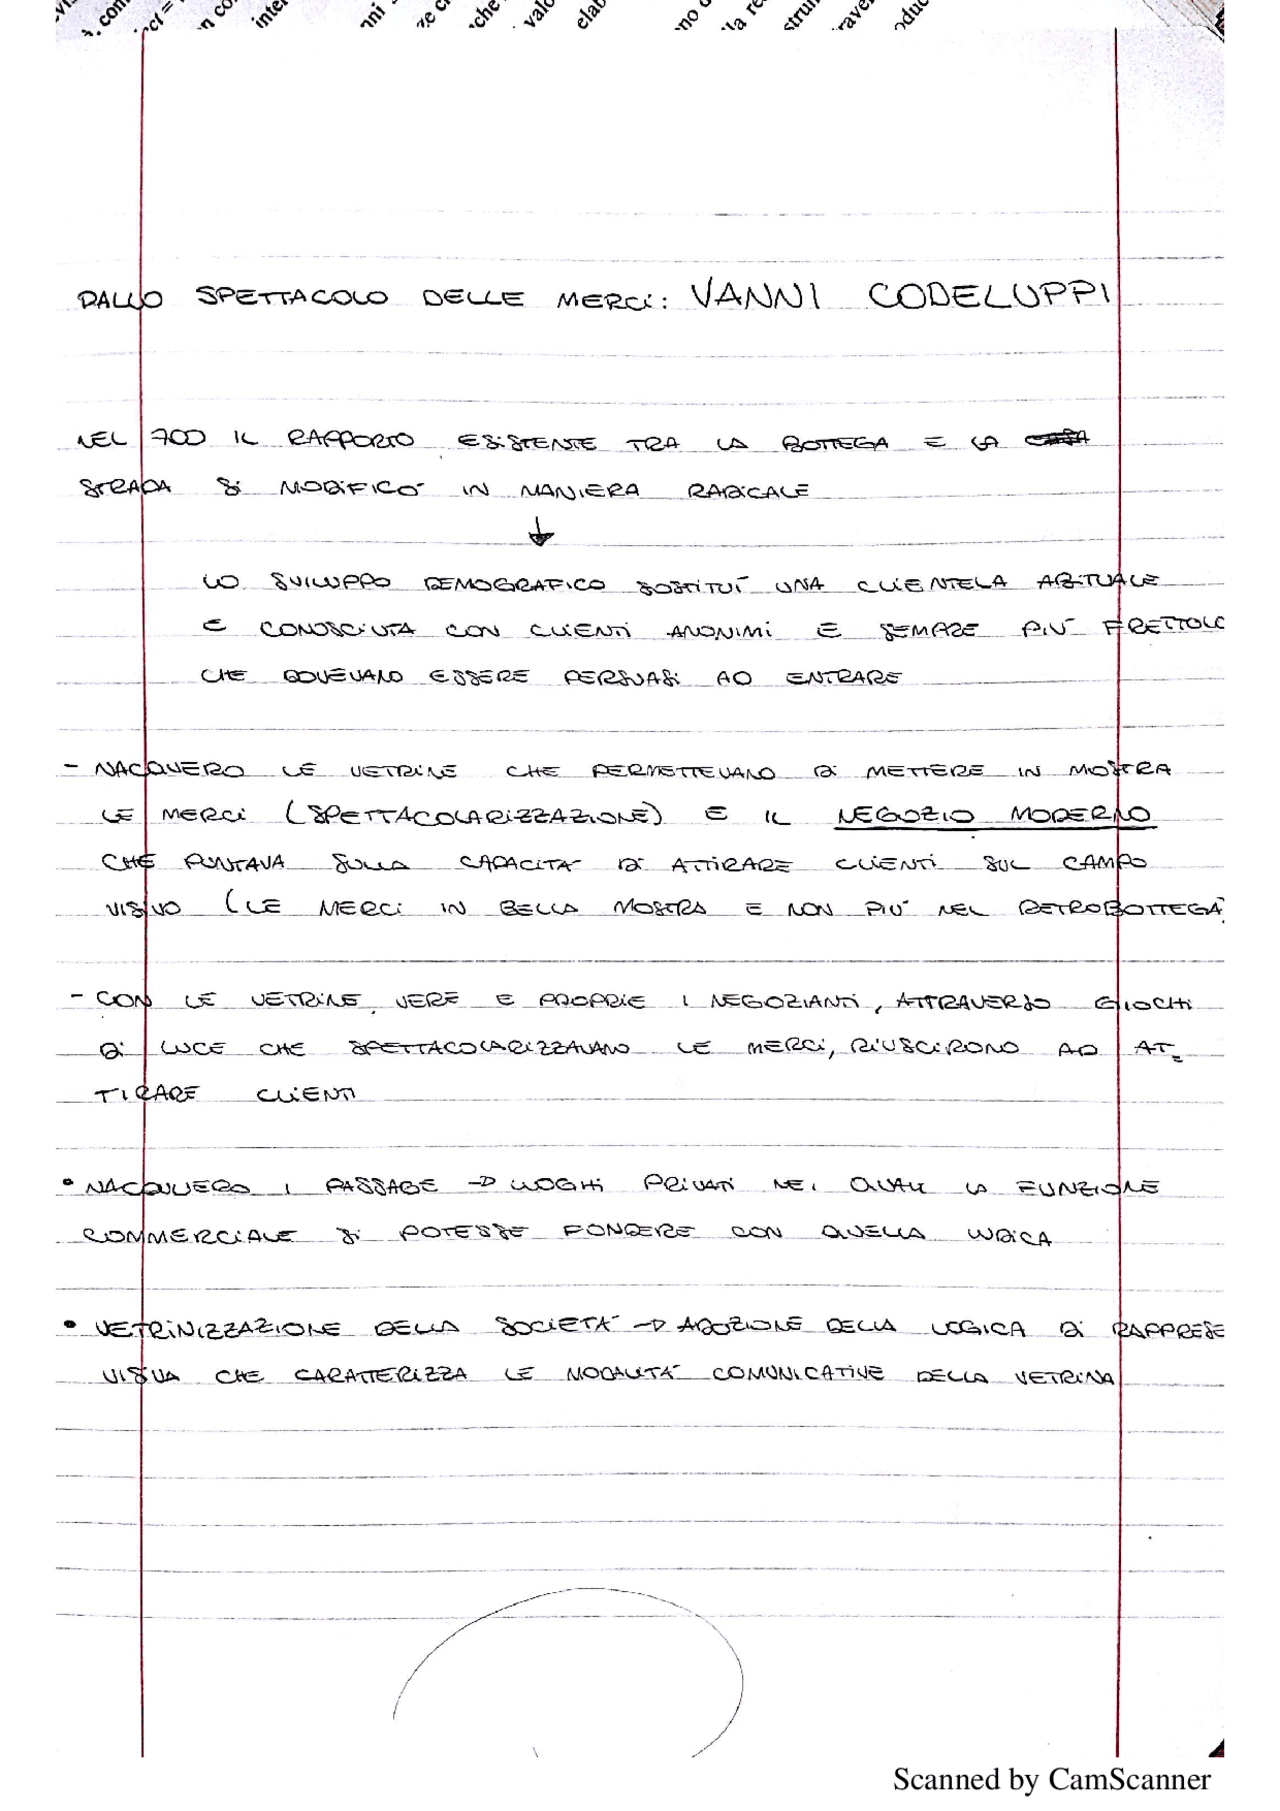 DALLO SPETTACOLO DELLE MERCI: VANNI CODELUPPI
NEL 700 IL RAPPORTO ESISTENTE TRA LA BOTTEGA E LA
STRADA SI MODIFICO' IN MANIERA RADICALE
↓
LO SVILUPPO DEMOGRAFICO SOSTITUÍ UNA CLIENTELA ABITUALE
E CONOSCIUTA CON CLIENTI ANONIMI E SEMPRE PIÚ FRETTOLO
CHE DOVEVANO ESSERE PERSUASI AD ENTRARE
- NACQUERO LE VETRINE CHE PERMETTEVANO DI METTERE IN MOSTRA
LE MERCI (SPETTACOLARIZZAZIONE) E IL NEGOZIO MODERNO
CHE PUNTAVA SULLA CAPACITA' DI ATTIRARE CLIENTI SUL CAMPO
VISIVO (LE MERCI IN BELLA MOSTRA E NON PIU' NEL RETROBOTTEGA)
- CON LE VETRINE VERE E PROPRIE I NEGOZIANTI, ATTRAVERSO GIOCHI
DI LUCE CHE SPETTACOLARIZZAVANO LE MERCI, RIUSCIRONO AD AT=
TIRARE CLIENTI
• NACQUERO I PASSAGE → LUOGHI PRIVATI NEI QUALI LA FUNZIONE
COMMERCIALE SI POTESSE FONDERE CON QUELLA LUDICA
• VETRINIZZAZIONE DELLA SOCIETA' → ADOZIONE DELLA LOGICA DI RAPPRESE
VISIVA CHE CARATTERIZZA LE MODALITA' COMUNICATIVE DELLA VETRINA
Scanned by CamScanner